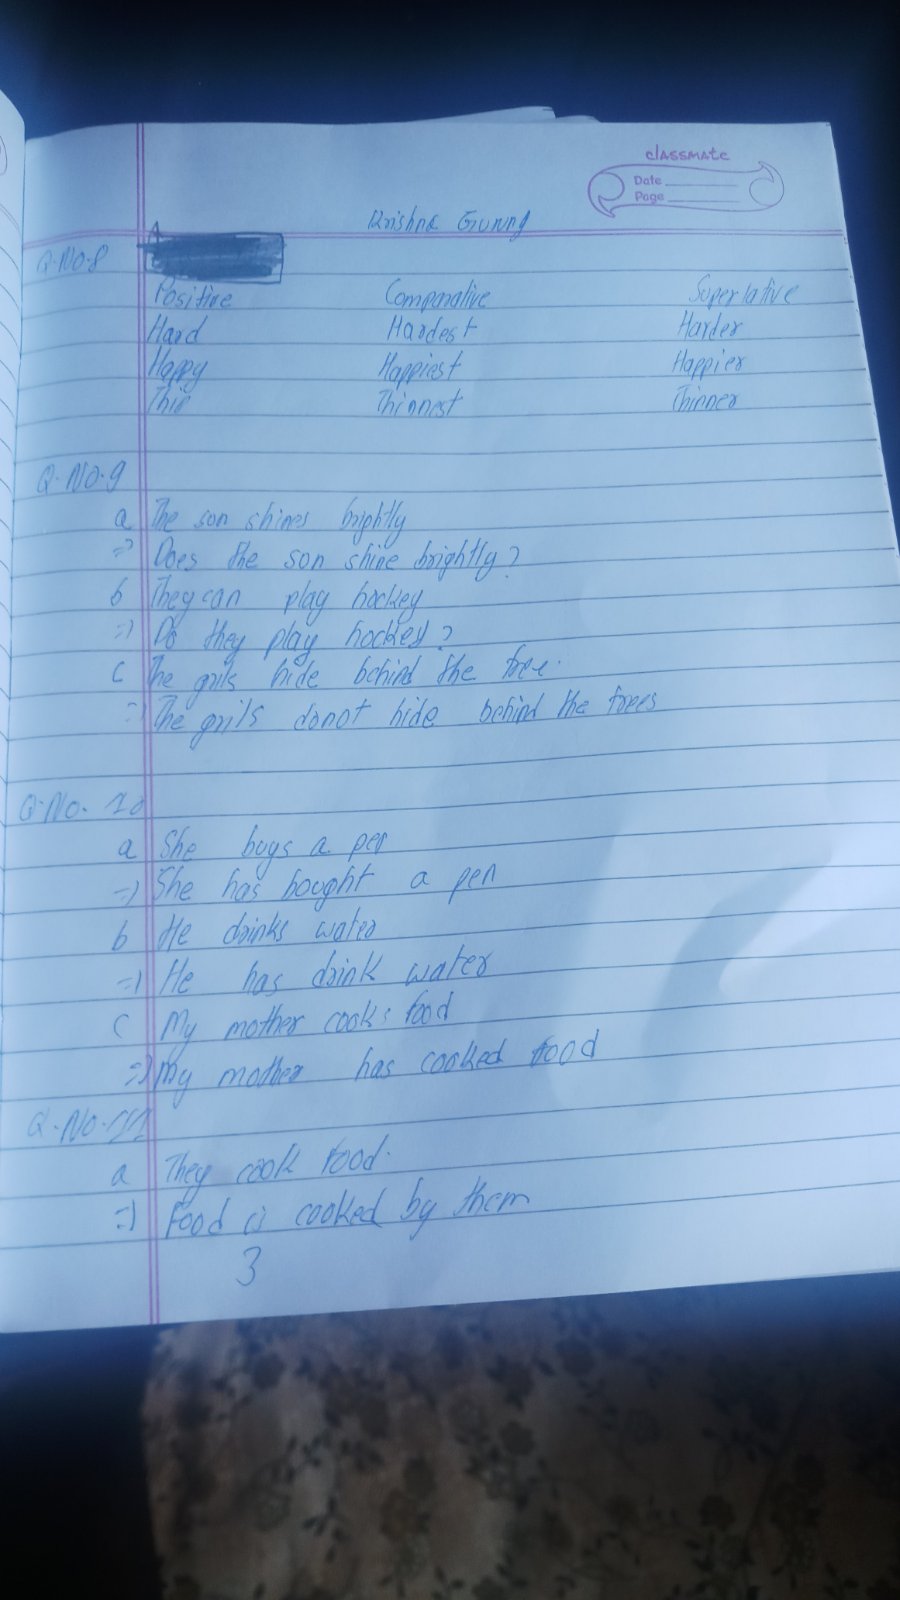 classmate
Date
Page
Krishna Gurung
Q.No.8
Positive Comparative Superlative
Hard Hardest Harder
Happy Happiest Happier
Thin Thinnest Thinner
Q.No.9
a The son shines brightly
=> Does the son shine brightly?
b They can play hockey
=> Do they play hockey?
c The grils hide behind the tree.
=> The grils donot hide behind the trees
Q.No. 10
a She buys a pen
=> She has bought a pen
b He drinks water
=> He has drink water
c My mother cooks food
=> My mother has cooked food
Q.No.11
a They cook food.
=> Food is cooked by them
3